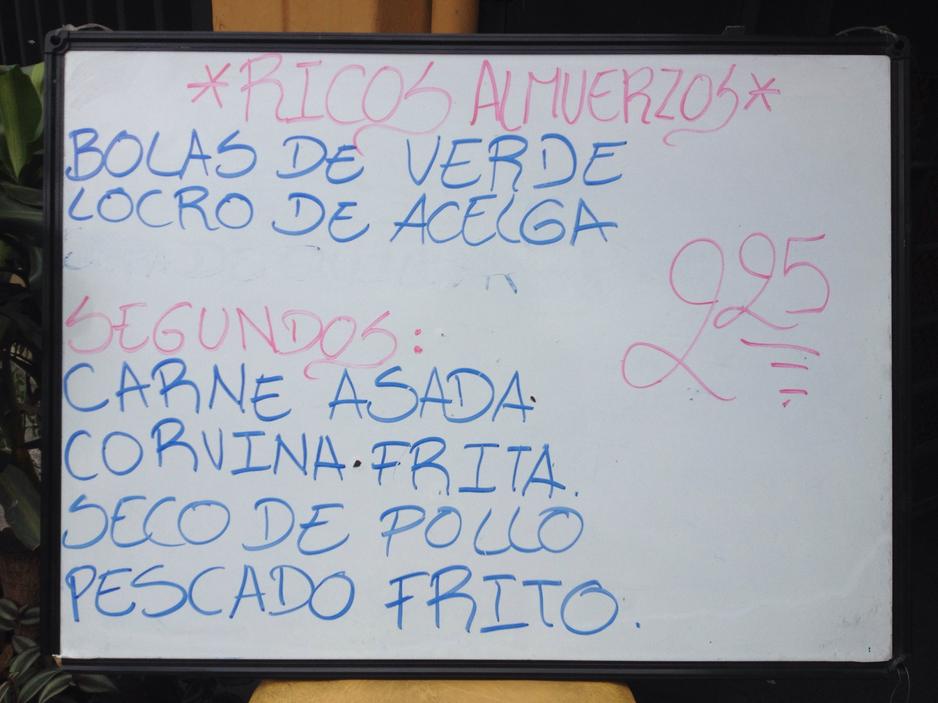 *RICOS ALMUERZOS*
BOLAS DE VERDE
LOCRO DE ACELGA
2 25
SEGUNDOS:
CARNE ASADA.
CORVINA FRITA.
SECO DE POLLO
PESCADO FRITO.